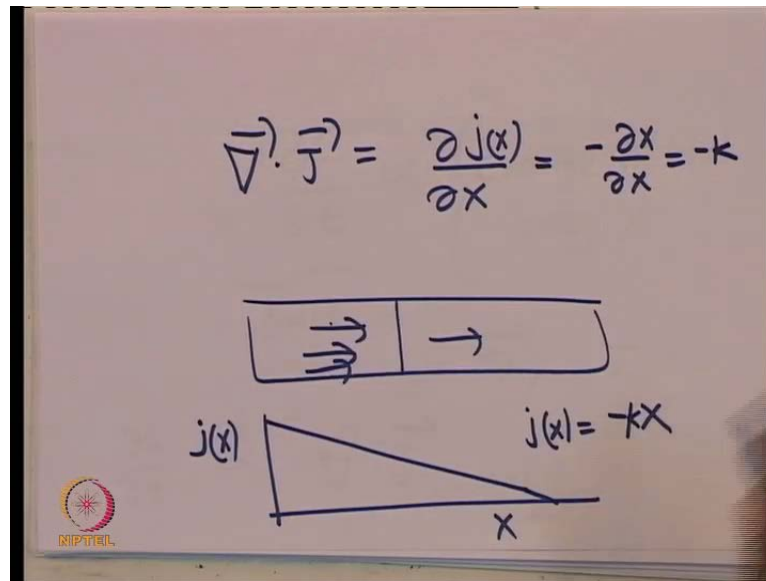 ∇⃗·J⃗ = ∂j(x)/∂x = -∂x/∂x = -k
j(x)
j(x) = -kx
x
NPTEL